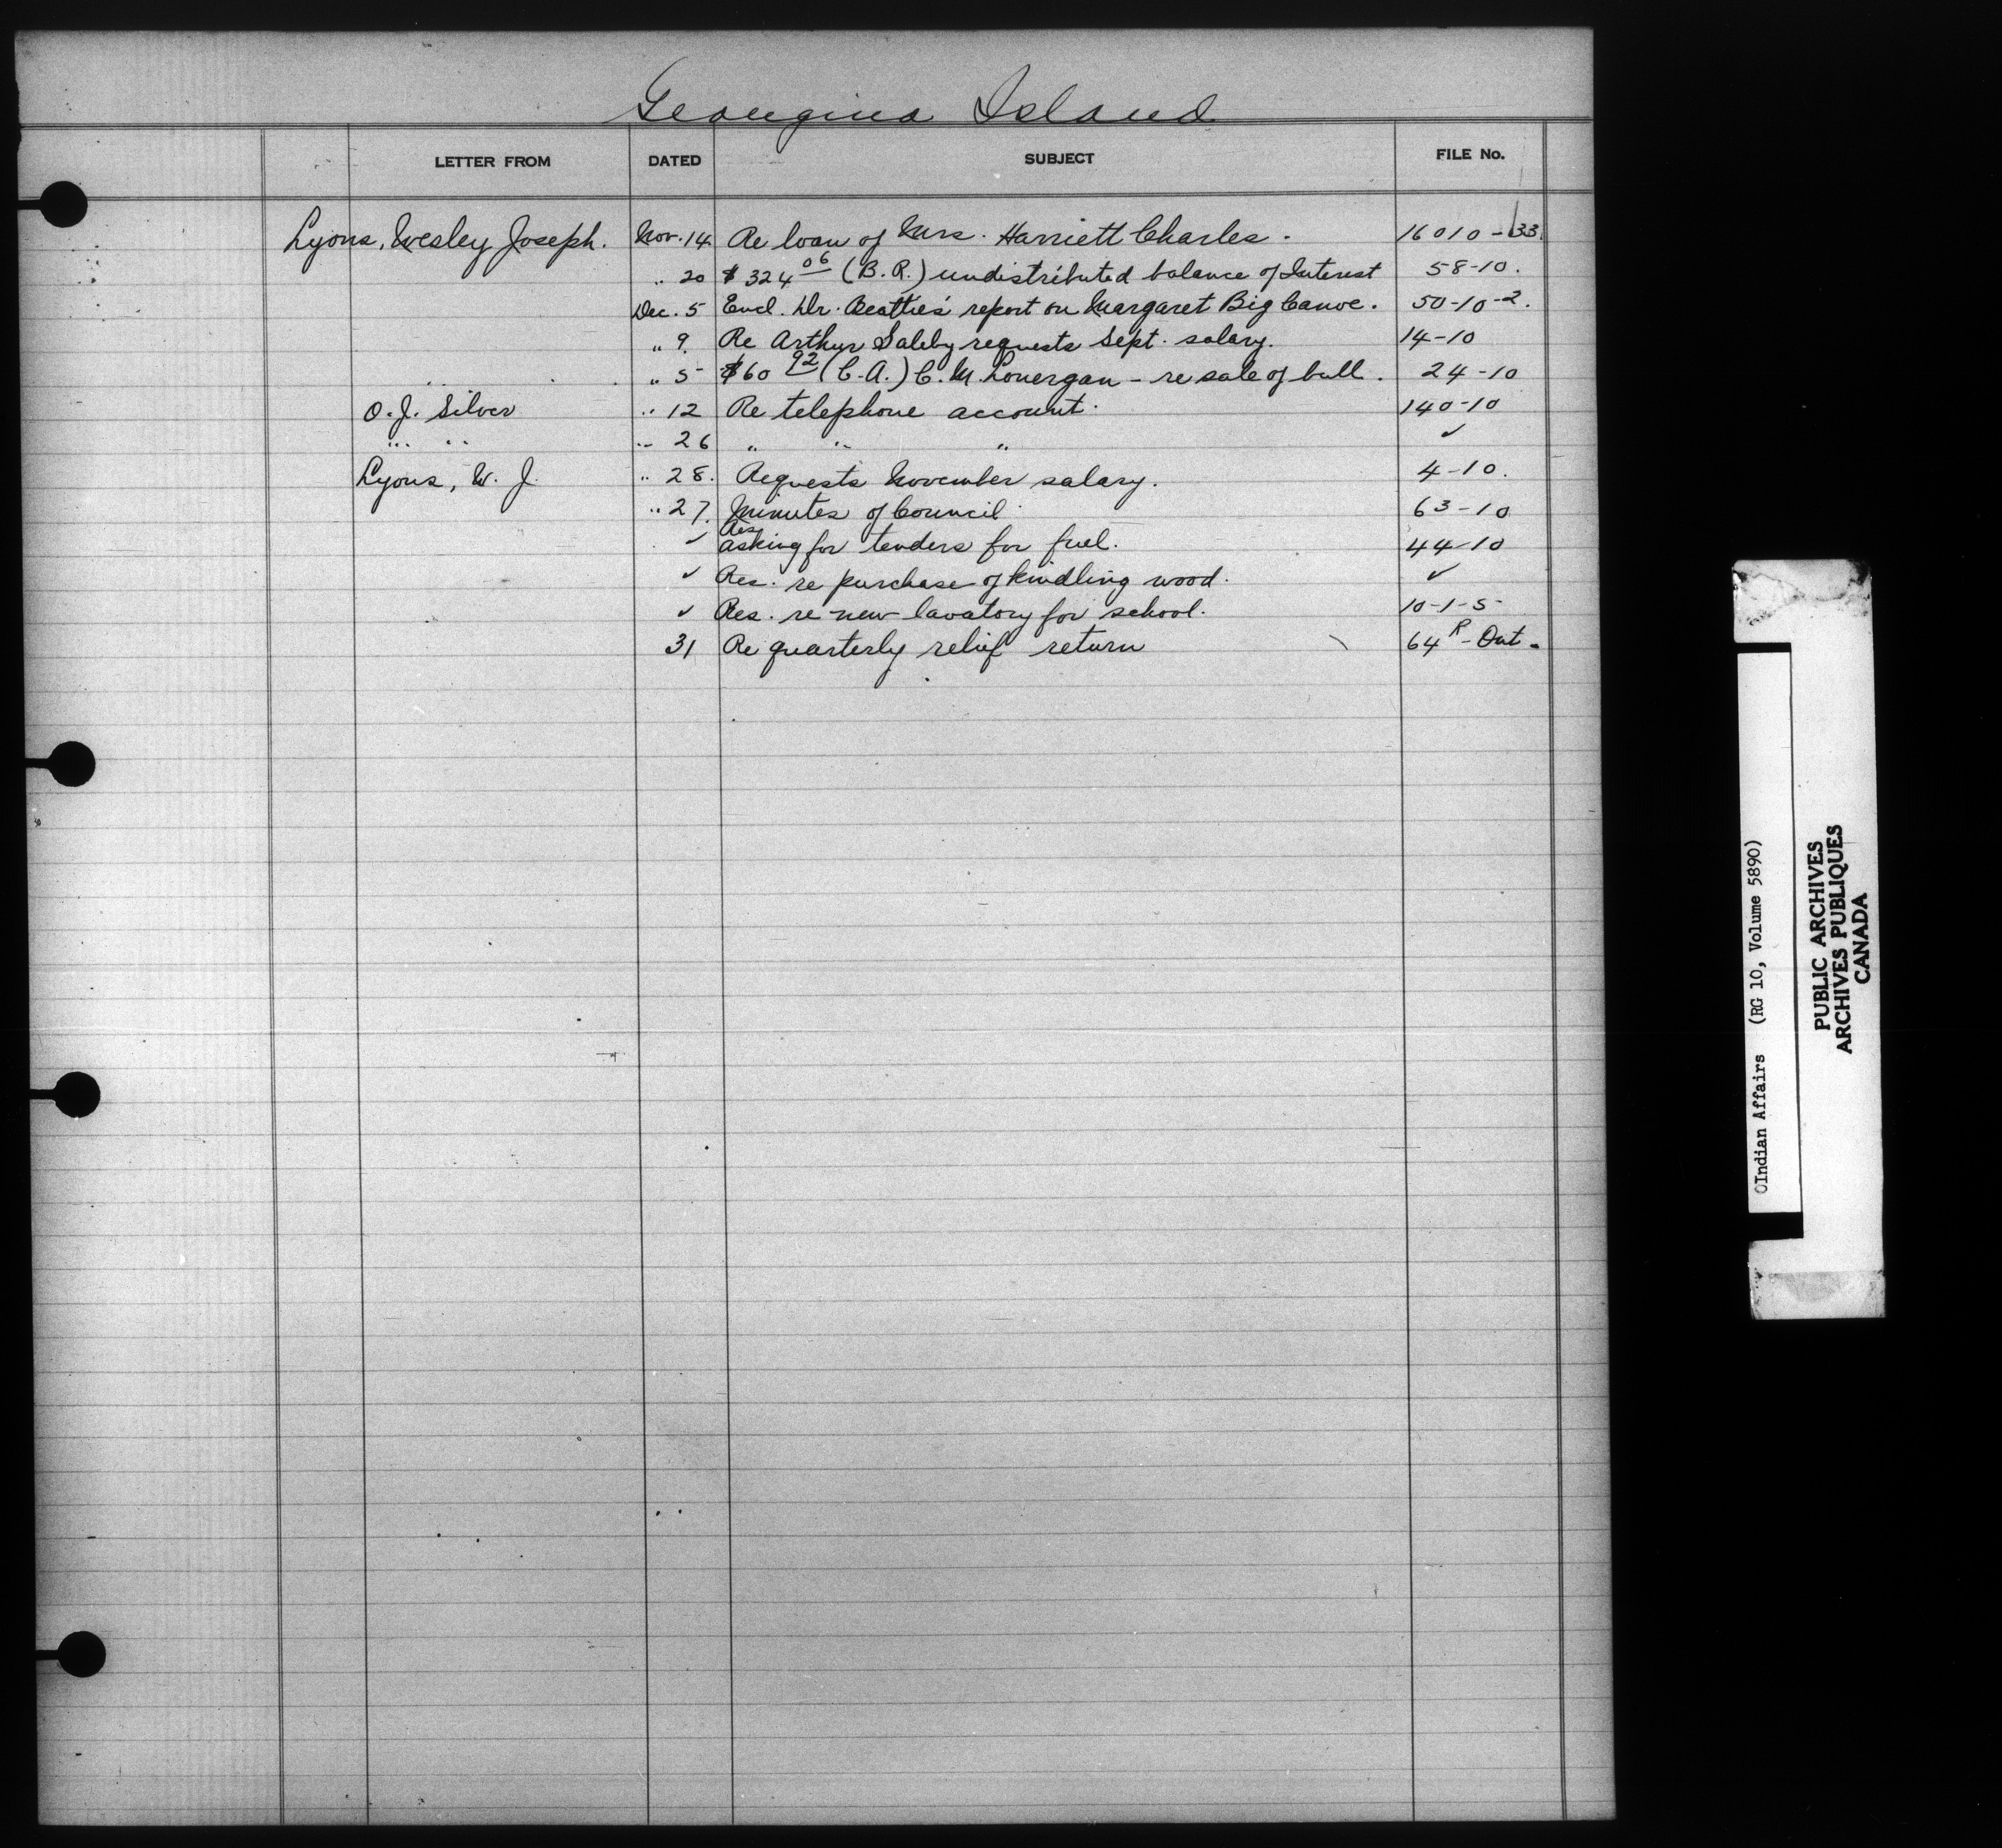 Georgina Island
LETTER FROM DATED SUBJECT FILE No.
Lyons, Wesley Joseph. Nov. 14 Re loan of Mrs. Harriett Charles. 16010-133
" 20 $324 06 (B.R.) undistributed balance of Interest 58-10.
Dec. 5 Encl. Dr. Beattie's report on Margaret Big Canoe. 50-10-2.
" 9. Re Arthur requests Sept. salary. 14-10
" 5 $60 92 (C.A.) C. M. Lonergan - re sale of bull. 24-10
O. J. Silver " 12 Re telephone account. 140-10
" " " 26 " " " ✓
Lyons, W. J. " 28. Requests November salary. 4-10.
" 27. Minutes of Council 63-10
✓ Res asking for tenders for fuel. 44-10
✓ Res. re purchase of kindling wood. ✓
✓ Res. re new lavatory for school. 10-1-5
31 Re quarterly relief return 64 R - Ont.
Indian Affairs (RG 10, Volume 5890)
PUBLIC ARCHIVES
ARCHIVES PUBLIQUES
CANADA